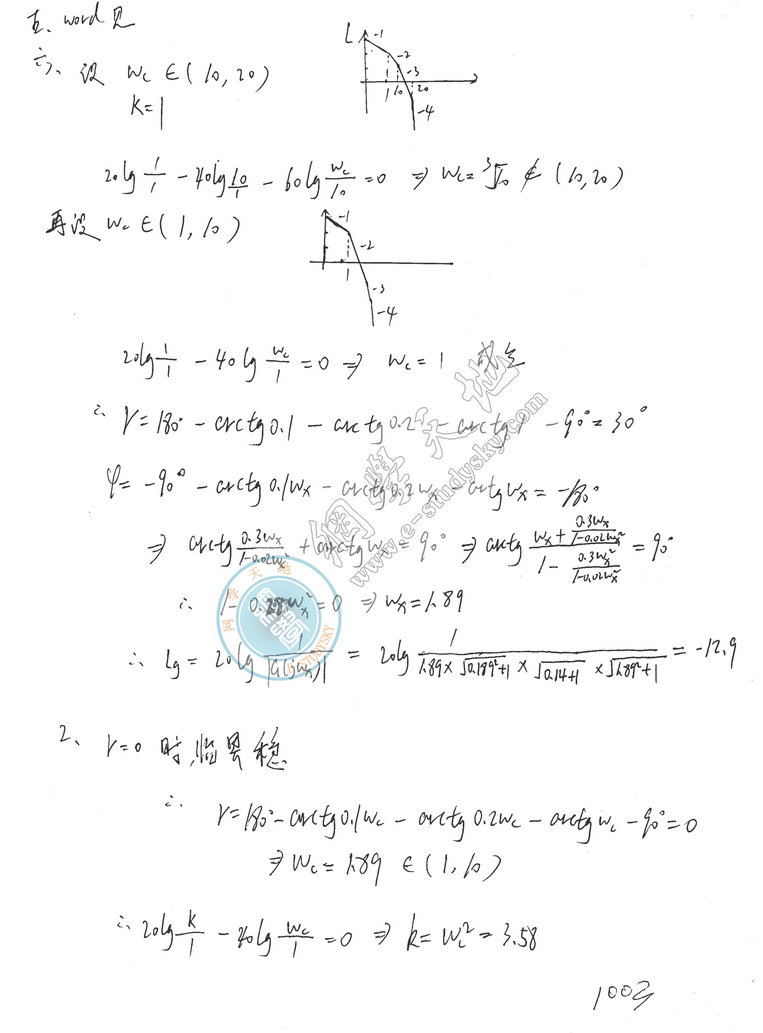 五、word见
六、设 wc∈(10,20)
K=1
L -1 -2 -3 -4 1 10 20
20lg 1/1 - 40lg 10/1 - 60lg wc/10 = 0 ⇒ wc = ³√10 ∉ (10,20)
再设 wc∈(1,10)
-1 -2 -3 -4 1
20lg 1/1 - 40lg wc/1 = 0 ⇒ wc = 1 成立
∴ γ=180° - arctg0.1 - arctg0.2 - arctg1 - 90° = 30°
φ= -90° - arctg0.1wx - arctg0.2wx - arctgwx = -180°
⇒ arctg 0.3wx/(1-0.02wx²) + arctgwx = 90° ⇒ arctg (wx + 0.3wx/(1-0.02wx²))/(1 - 0.3wx²/(1-0.02wx²)) = 90°
∴ 1 - 0.28wx² = 0 ⇒ wx = 1.89
∴ Lg = 20lg 1/|G(jwx)| = 20lg 1/(1.89×√(0.189²+1) × √(0.14+1) × √(1.89²+1)) = -12.9
2、γ=0 时,临界稳
∴ γ=180° - arctg0.1wc - arctg0.2wc - arctgwc - 90° = 0
⇒ wc = 1.89 ∈ (1,10)
∴ 20lg K/1 - 40lg wc/1 = 0 ⇒ k = wc² = 3.58
网学天地
www.e-studysky.com
网学天地
STUDYSKY